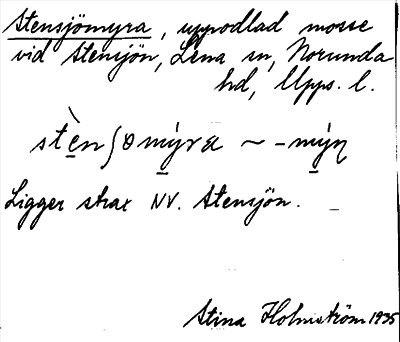 Stensjömyra, uppodlad mosse
vid Stensjön, Lena sn, Norunda
hd, Upps. l.
Ligger strax NV. Stensjön.
Stina Holmström 1935